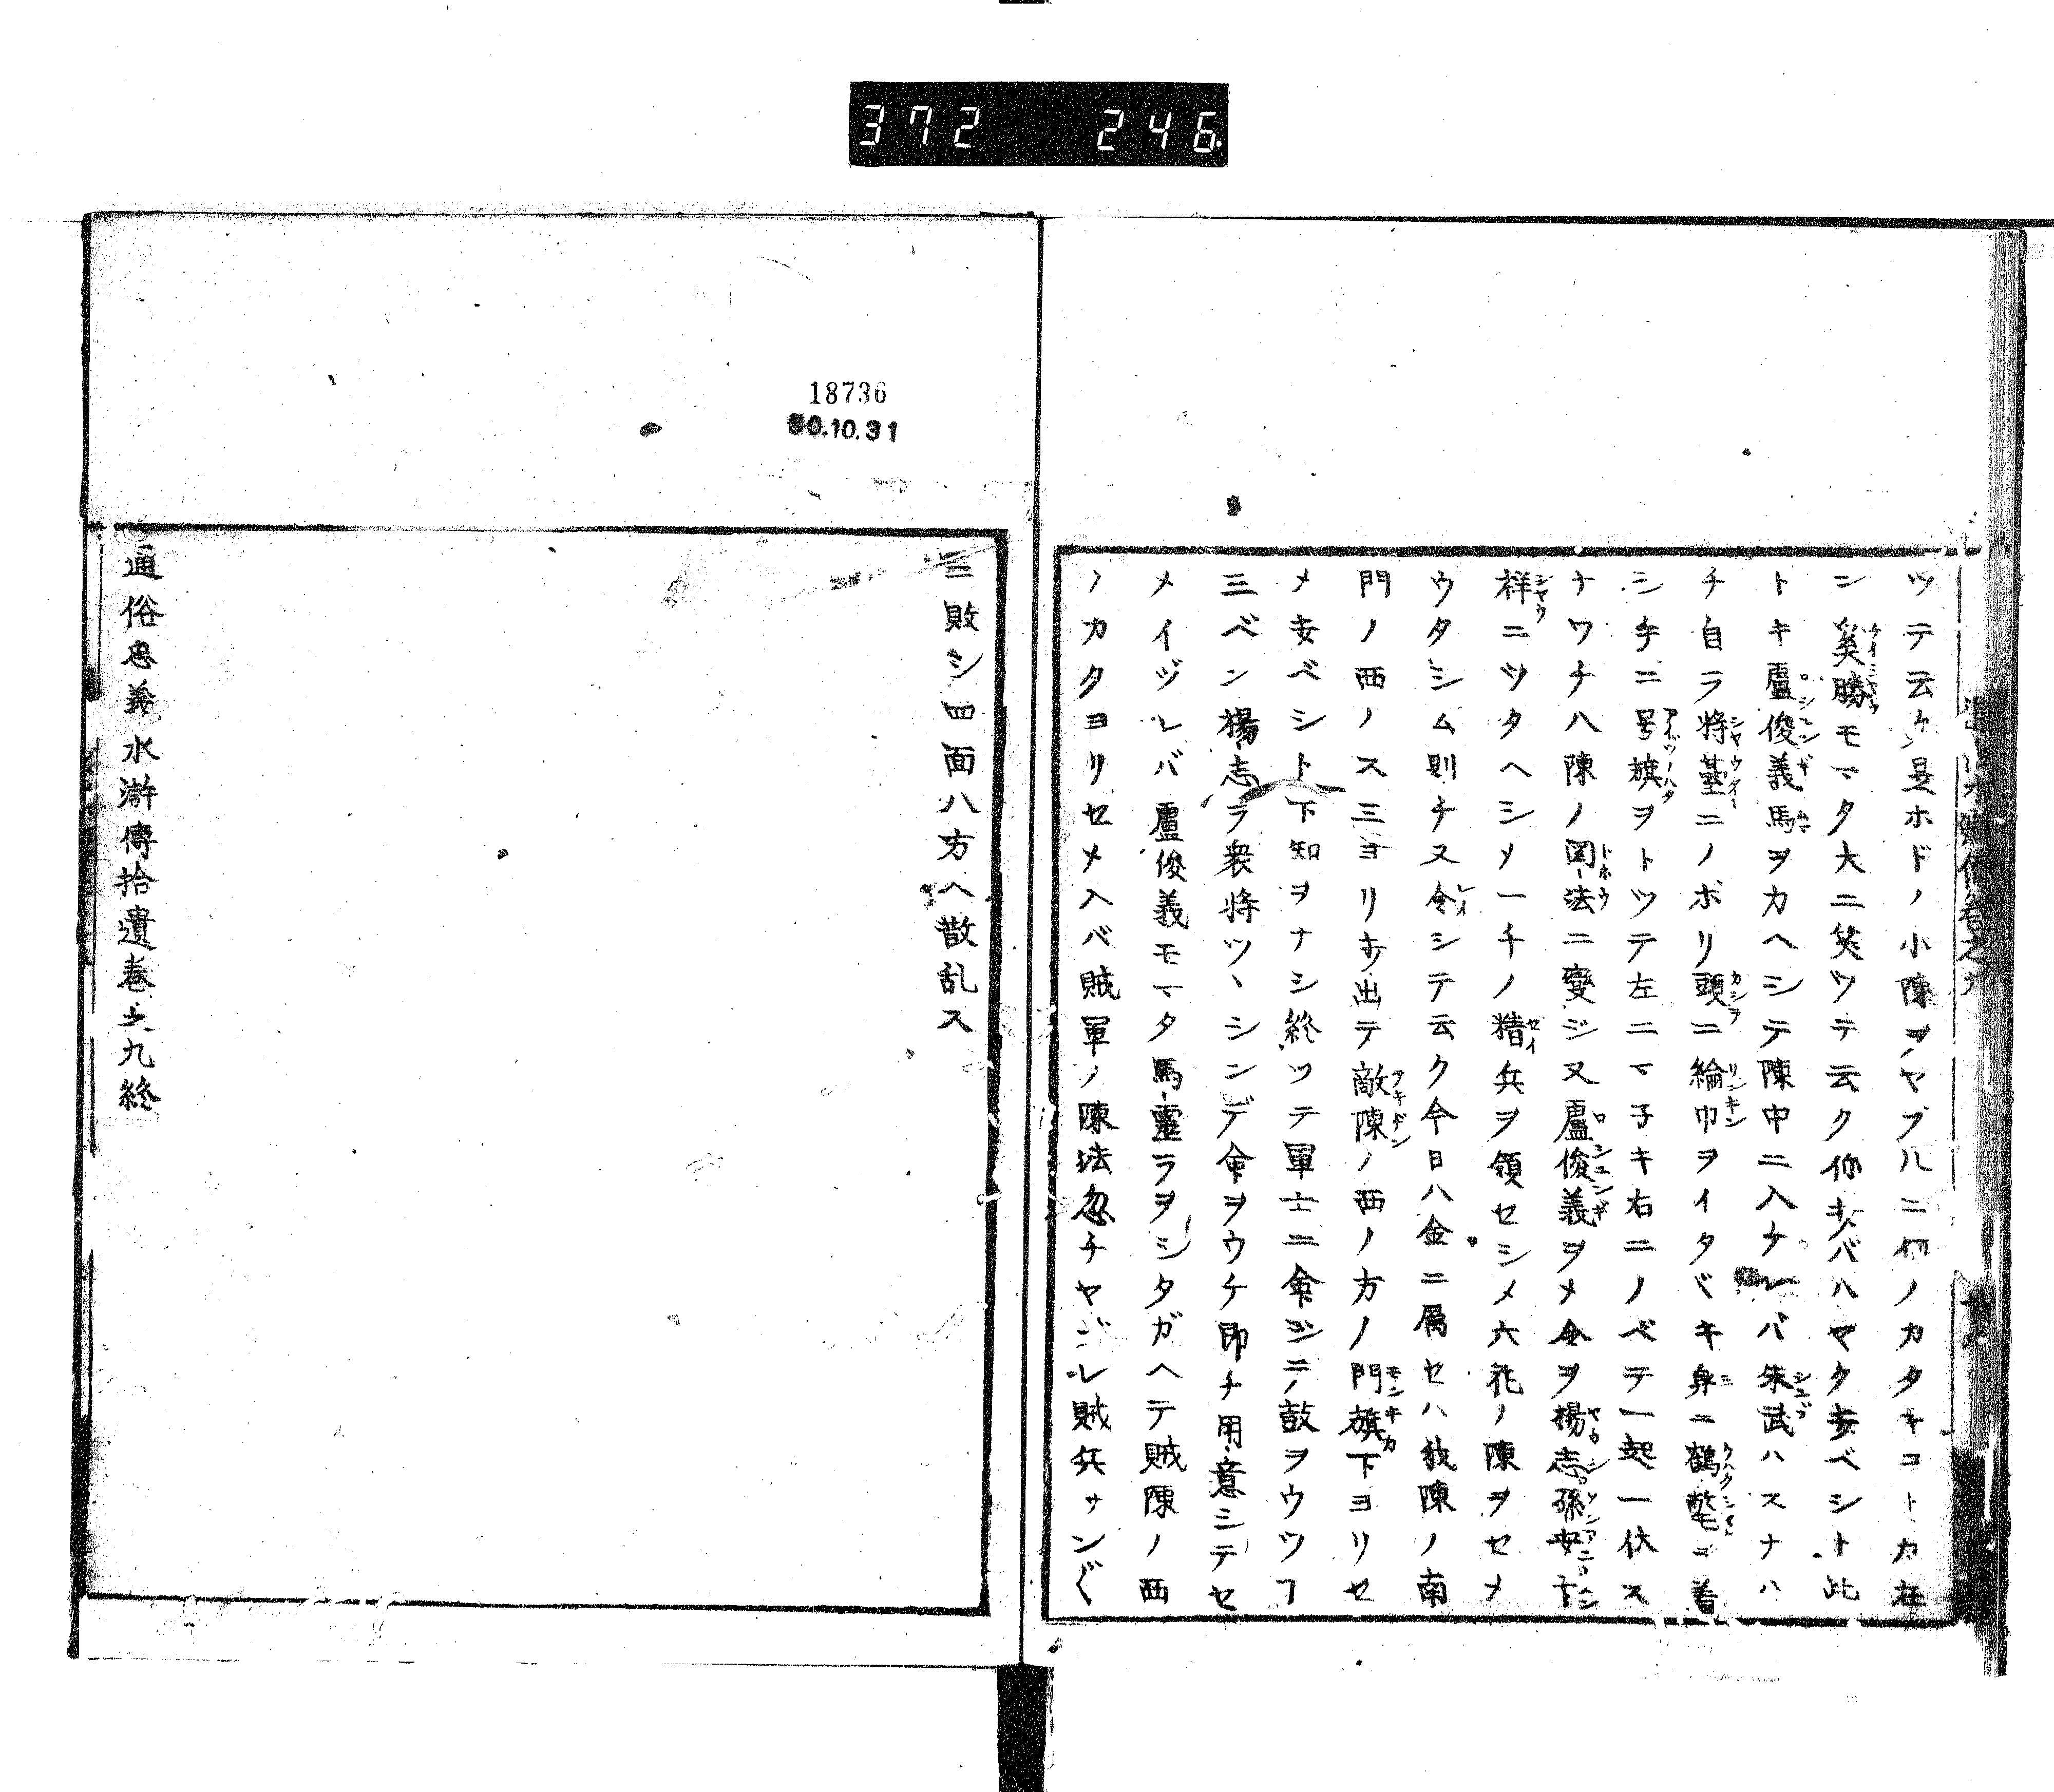 372 246
ツテ云ク是ホドノ小陳ヲヤブルニ何ノカタキコトカ在
ン奚勝モマタ大ニ笑ツテ云ク你バハヤク来ベシト此
トキ盧俊義馬ヲカヘシテ陳中ニ入ナレバ朱武ハスナハ
チ自ラ將䑓ニノボリ頭ニ綸巾ヲイタヾキ身ニ鶴氅ヲ着
シ手ニ号旗ヲトツテ左ニマ子キ右ニノベテ一起一伏ス
ナワチ八陳ノ図法ニ變ジ又盧俊義ヲメ令ヲ楊志孫安卞
祥ニツタヘシメ一千ノ精兵ヲ領セシメ六花ノ陳ヲセメ
ウタシム則チ又令シテ云ク今日ハ金ニ属セハ我陳ノ南
門ノ西ノス三ヨリ出テ敵陳ノ西ノ方ノ門旗下ヨリセ
メ来ベシト下知ヲナシ終ツテ軍士ニ命ジニノ鼓ヲウツフ
三ベン楊志ラ衆將ツヽシンデ命ヲウケ即チ用意シテセ
メイヅレバ盧俊義モマタ馬靈ラヲシタガヘテ賊陳ノ西
ノカタヨリセメ入バ賊軍ノ陳法忽チヤブレ賊兵サン〴〵
18736
50.10.31
ニ敗シ四面八方ヘ散乱ス
通俗忠義水滸傳拾遺卷之九終